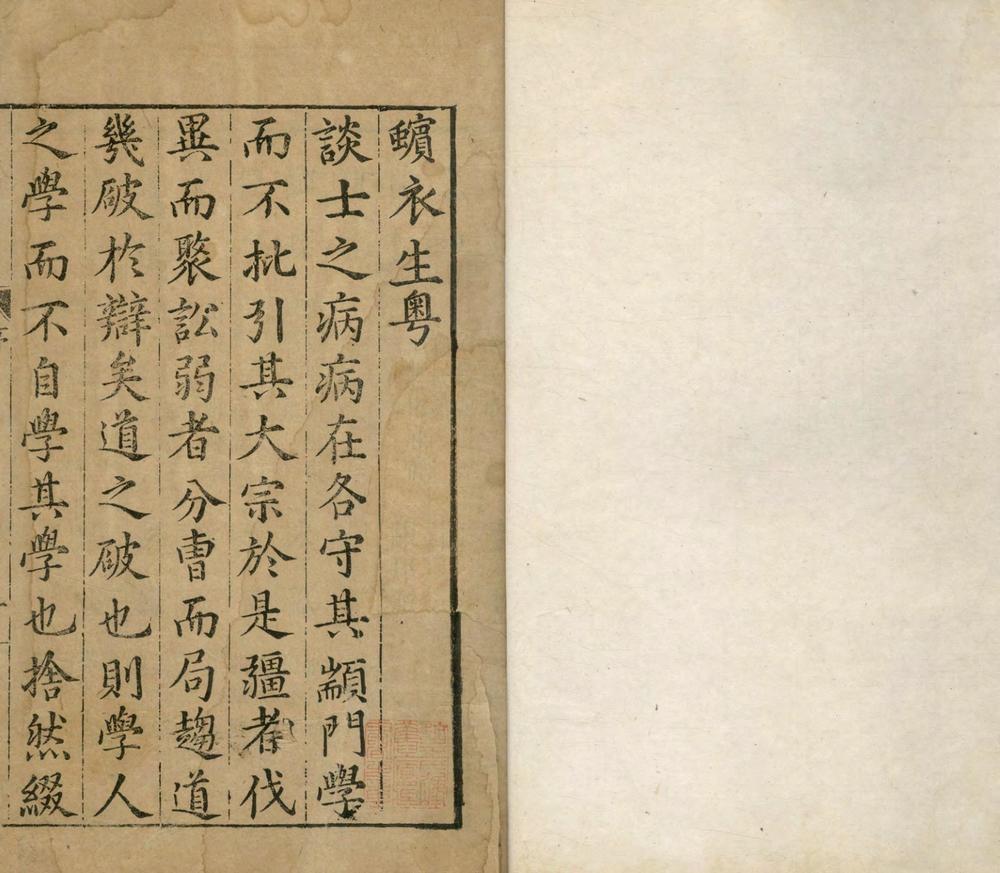 蠙衣生粵
談士之病病在各守其顓門學
而不批引其大宗於是疆者伐
異而聚訟弱者分曹而局趨道
幾破於辯矣道之破也則學人
之學而不自學其學也捨然綴